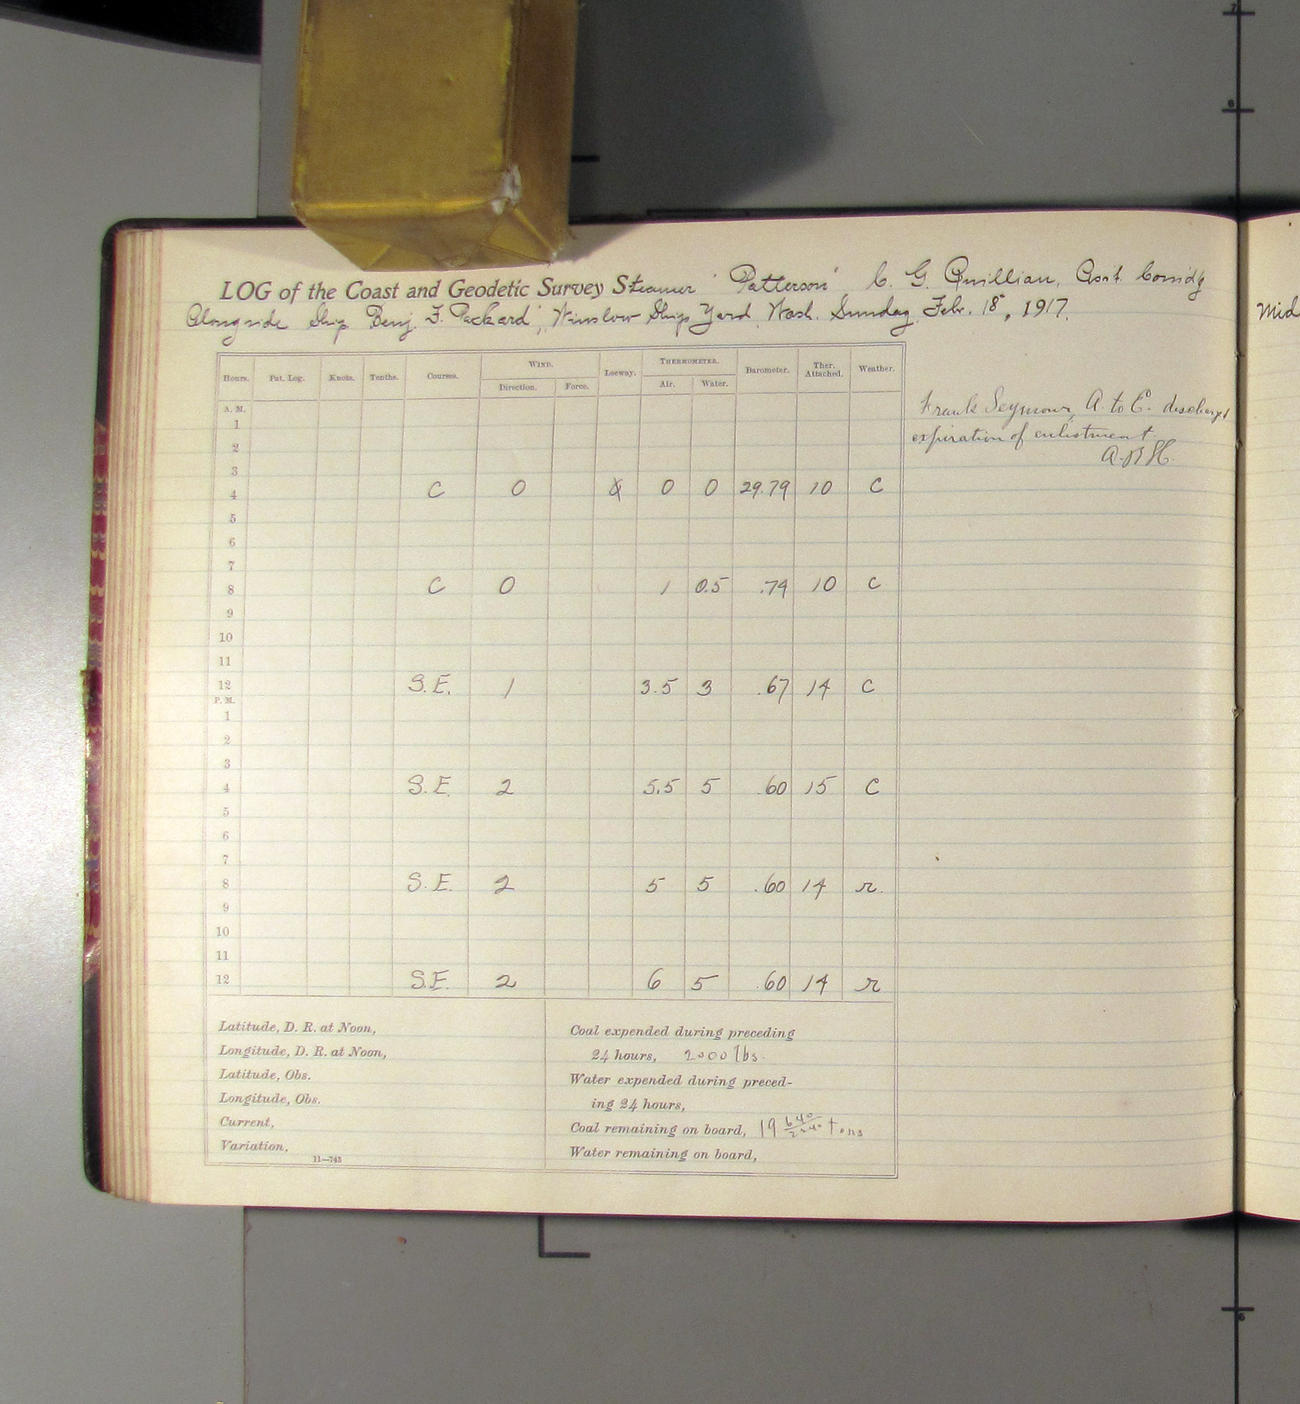 LOG of the Coast and Geodetic Survey Steamer "Patterson" C. G. Quillian, Asst. Comdg
Alongside Ship "Benj. F. Packard", Winslow Ship Yard, Wash. Sunday, Feb. 18", 1917.
Mid
Hours. Pat. Log. Knots. Tenths. Courses. WIND. Leeway. THERMOMETER. Barometer. Ther. Attached. Weather.
Direction. Force. Air. Water.
A. M.
1
2
3
4 C 0 0 0 29.79 10 C
5
6
7
8 C 0 1 0.5 .79 10 C
9
10
11
12 S.E. 1 3.5 3 .67 14 C
P. M.
1
2
3
4 S.E. 2 5.5 5 .60 15 C
5
6
7
8 S.E. 2 5 5 .60 14 r.
9
10
11
12 S.E. 2 6 5 .60 14 r
Frank Seymour, A. to E. discharged
expiration of enlistment
Latitude, D. R. at Noon,
Longitude, D. R. at Noon,
Latitude, Obs.
Longitude, Obs.
Current,
Variation,
11—743
Coal expended during preceding
24 hours, 2000 lbs.
Water expended during preced-
ing 24 hours,
Coal remaining on board, 19 640/2240 tons
Water remaining on board,